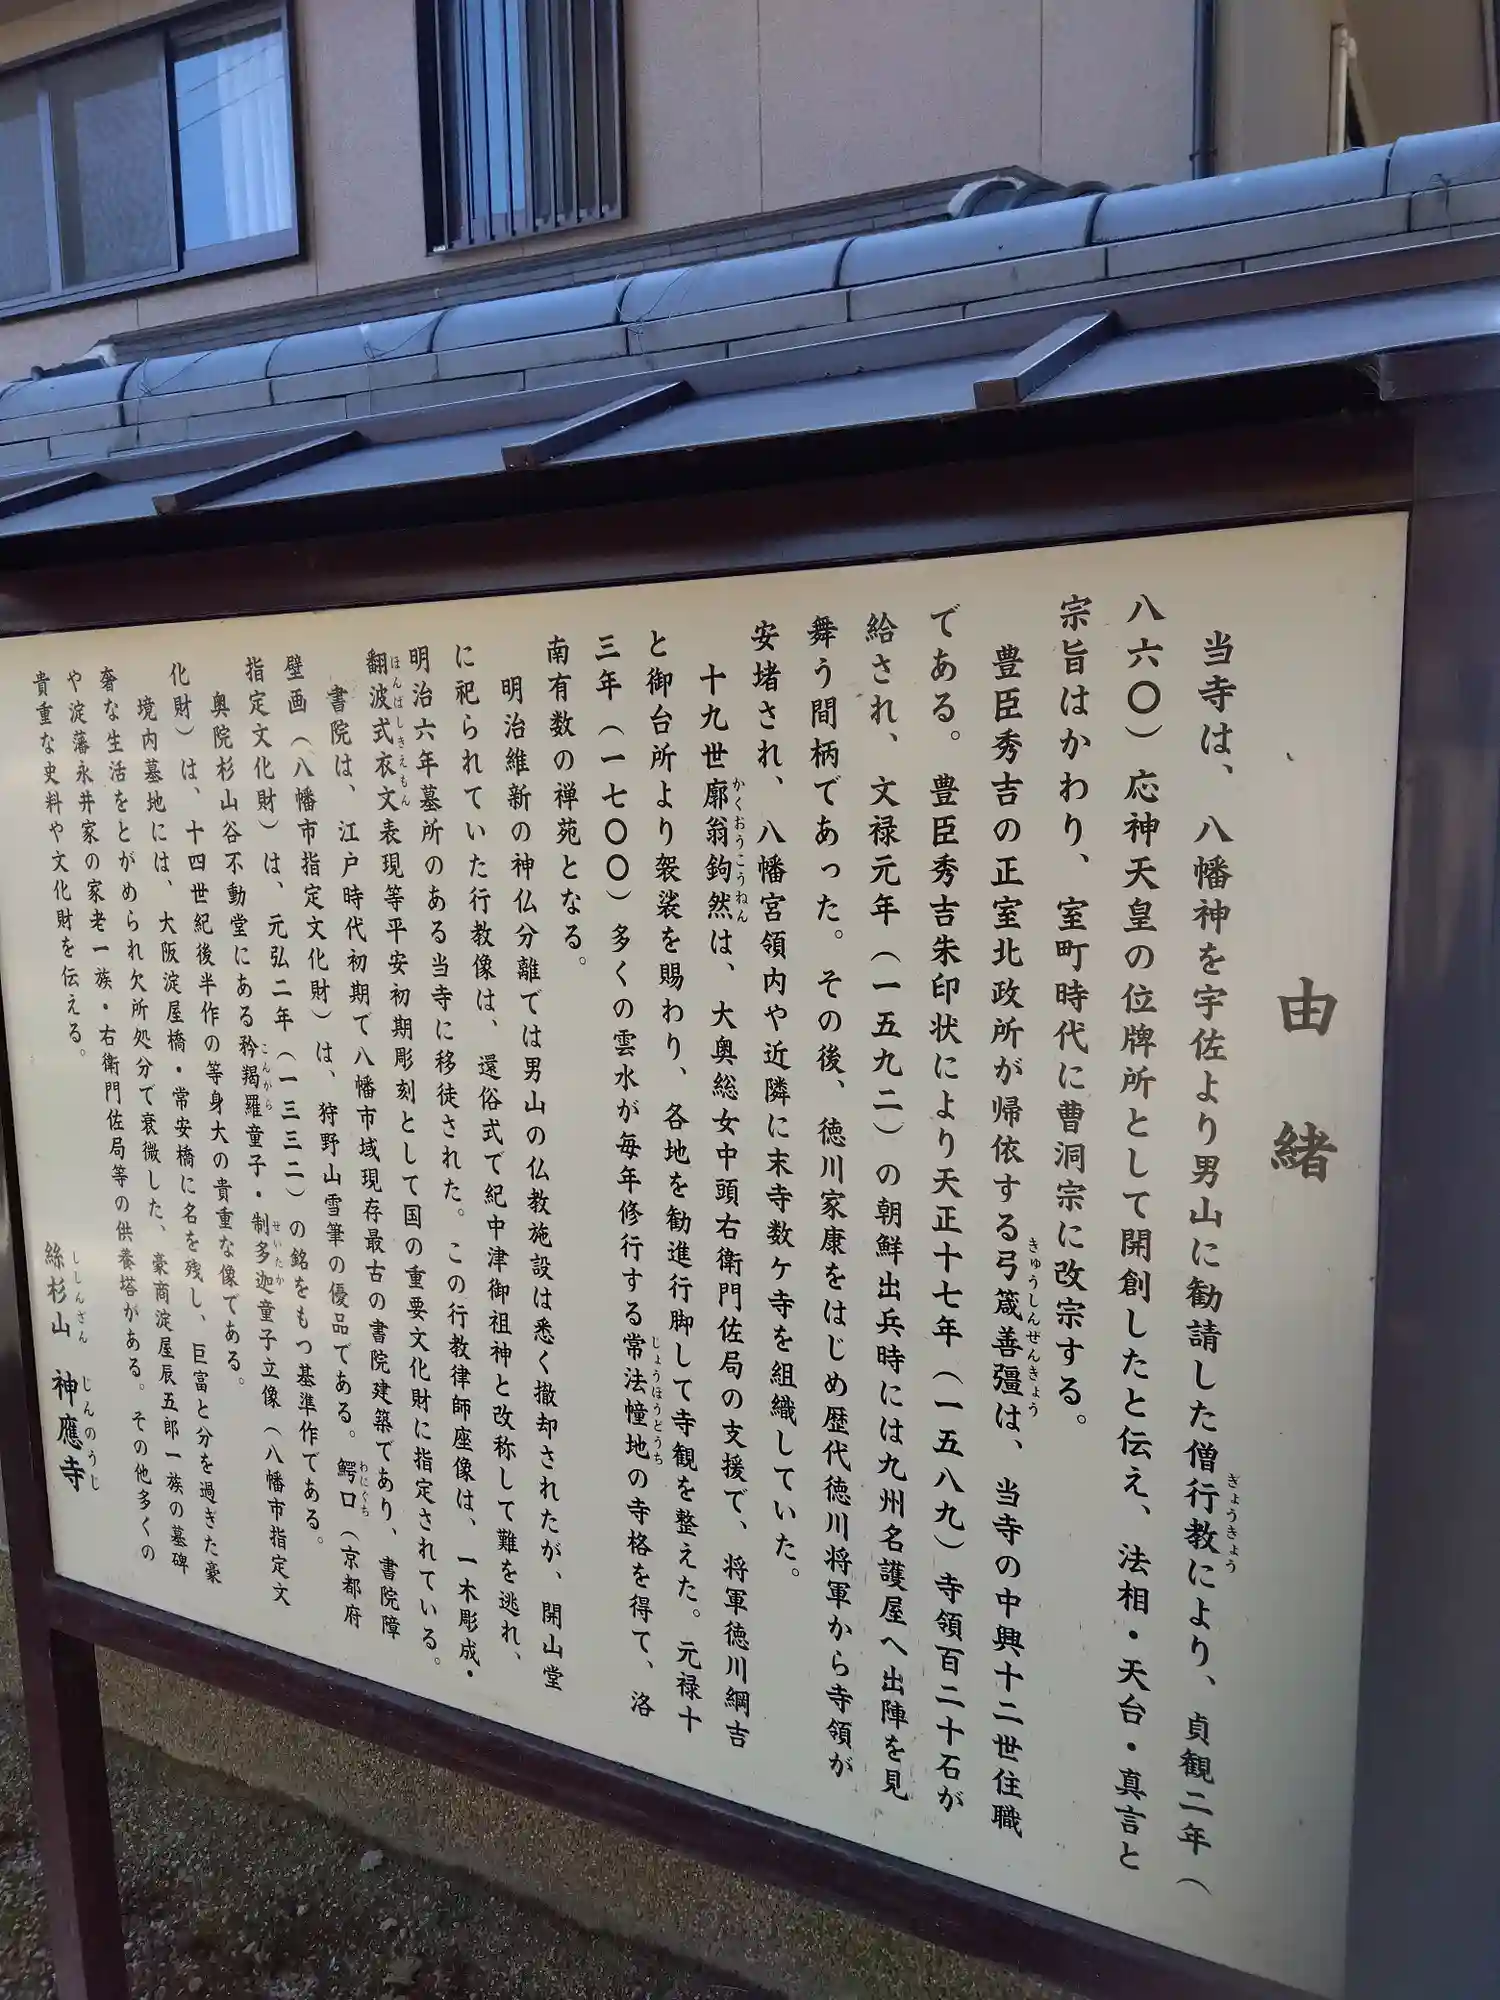 由緒
当寺は、八幡神を宇佐より男山に勧請した僧行教により、貞観二年（
ぎょうきょう
八六〇）応神天皇の位牌所として開創したと伝え、法相・天台・真言と
宗旨はかわり、室町時代に曹洞宗に改宗する。
豊臣秀吉の正室北政所が帰依する弓箴善彊は、当寺の中興十二世住職
きゅうしんぜんきょう
である。豊臣秀吉朱印状により天正十七年（一五八九）寺領百二十石が
給され、文禄元年（一五九二）の朝鮮出兵時には九州名護屋へ出陣を見
舞う間柄であった。その後、徳川家康をはじめ歴代徳川将軍から寺領が
安堵され、八幡宮領内や近隣に末寺数ケ寺を組織していた。
十九世廓翁鉤然は、大奥総女中頭右衛門佐局の支援で、将軍徳川綱吉
かくおうこうねん
と御台所より袈裟を賜わり、各地を勧進行脚して寺観を整えた。元禄十
三年（一七〇〇）多くの雲水が毎年修行する常法幢地の寺格を得て、洛
じょうほうどうち
南有数の禅苑となる。
明治維新の神仏分離では男山の仏教施設は悉く撤却されたが、開山堂
に祀られていた行教像は、還俗式で紀中津御祖神と改称して難を逃れ、
明治六年墓所のある当寺に移徒された。この行教律師座像は、一木彫成・
翻波式衣文表現等平安初期彫刻として国の重要文化財に指定されている。
ほんぱしきえもん
書院は、江戸時代初期で八幡市域現存最古の書院建築であり、書院障
壁画（八幡市指定文化財）は、狩野山雪筆の優品である。鰐口（京都府
わにぐち
指定文化財）は、元弘二年（一三三二）の銘をもつ基準作である。
奥院杉山谷不動堂にある矜羯羅童子・制多迦童子立像（八幡市指定文
こんがら
せいたか
化財）は、十四世紀後半作の等身大の貴重な像である。
境内墓地には、大阪淀屋橋・常安橋に名を残し、巨富と分を過ぎた豪
奢な生活をとがめられ欠所処分で衰微した、豪商淀屋辰五郎一族の墓碑
や淀藩永井家の家老一族・右衛門佐局等の供養塔がある。その他多くの
貴重な史料や文化財を伝える。
絲杉山 神應寺
ししんざん じんのうじ